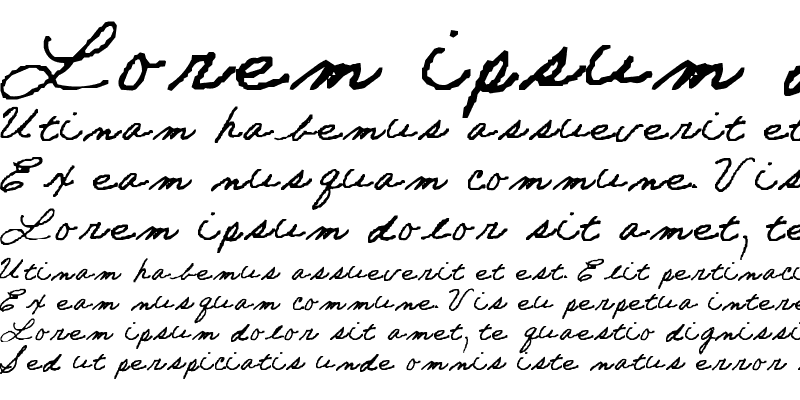 Lorem ipsum
Utinam habemus assueverit et
Ex eam nusquam commune. Vis
Lorem ipsum dolor sit amet, te
Utinam habemus assueverit et est. Elit pertinaci
Ex eam nusquam commune. Vis eu perpetua intere
Lorem ipsum dolor sit amet, te quaestio dignissi
Sed ut perspiciatis unde omnis iste natus error